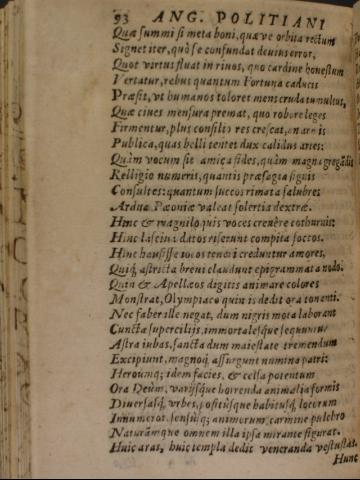 93 ANG. POLITIANI
Quæ summi si meta boni, quæve orbita rectum
Signet iter, quò se confundat devius error,
Quot virtus fluat in rivos, quo cardine honestum
Vertatur, rebus quantum Fortuna caducis
Præsit, vt humanos toloret mens cruda tumultus,
Quæ cives mensura premat, quo robore leges
Firmentur, plus consilio res crescat, an armis
Publica, quas belli tentet dux calidus artes:
Quàm vocum sit amica fides, quàm magna gregalis
Relligio numeris, quantis præsagia signis
Consultes: quantum succos rimata salubres
Ardua Pæoniæ valeat solertia dextræ.
Hinc & magniloquis voces crevêre cothurnis:
Hinc lascivia datos riserunt compita soccos.
Hinc hausisse iocos teneri creduntur amores,
Quiq; astricta brevi claudunt epigrammata nodo.
Quin & Apellæos digitis animare colores
Monstrat, Olympiaco quin is dedit ora tonenti.
Nec faber ille negat, dum nigris mota laborant
Cuncta supercilijs, immortalesque sequuntur
Astra iubas, sancta dum maiestate tremendum
Excipiunt, magnoq; assurgunt numina patri:
Heroumq; idem facies, & celsa potentum
Ora Deûm, varijsque horrenda animalia formis
Diversasq; vrbes, positùsque habitusq; locorum
Innumerot. sensusq; animorum carmine pulchro
Naturàmque omnem illa ipsa mirante figurat.
Huic aras, huic templa dedit veneranda vetustas.
Hunc